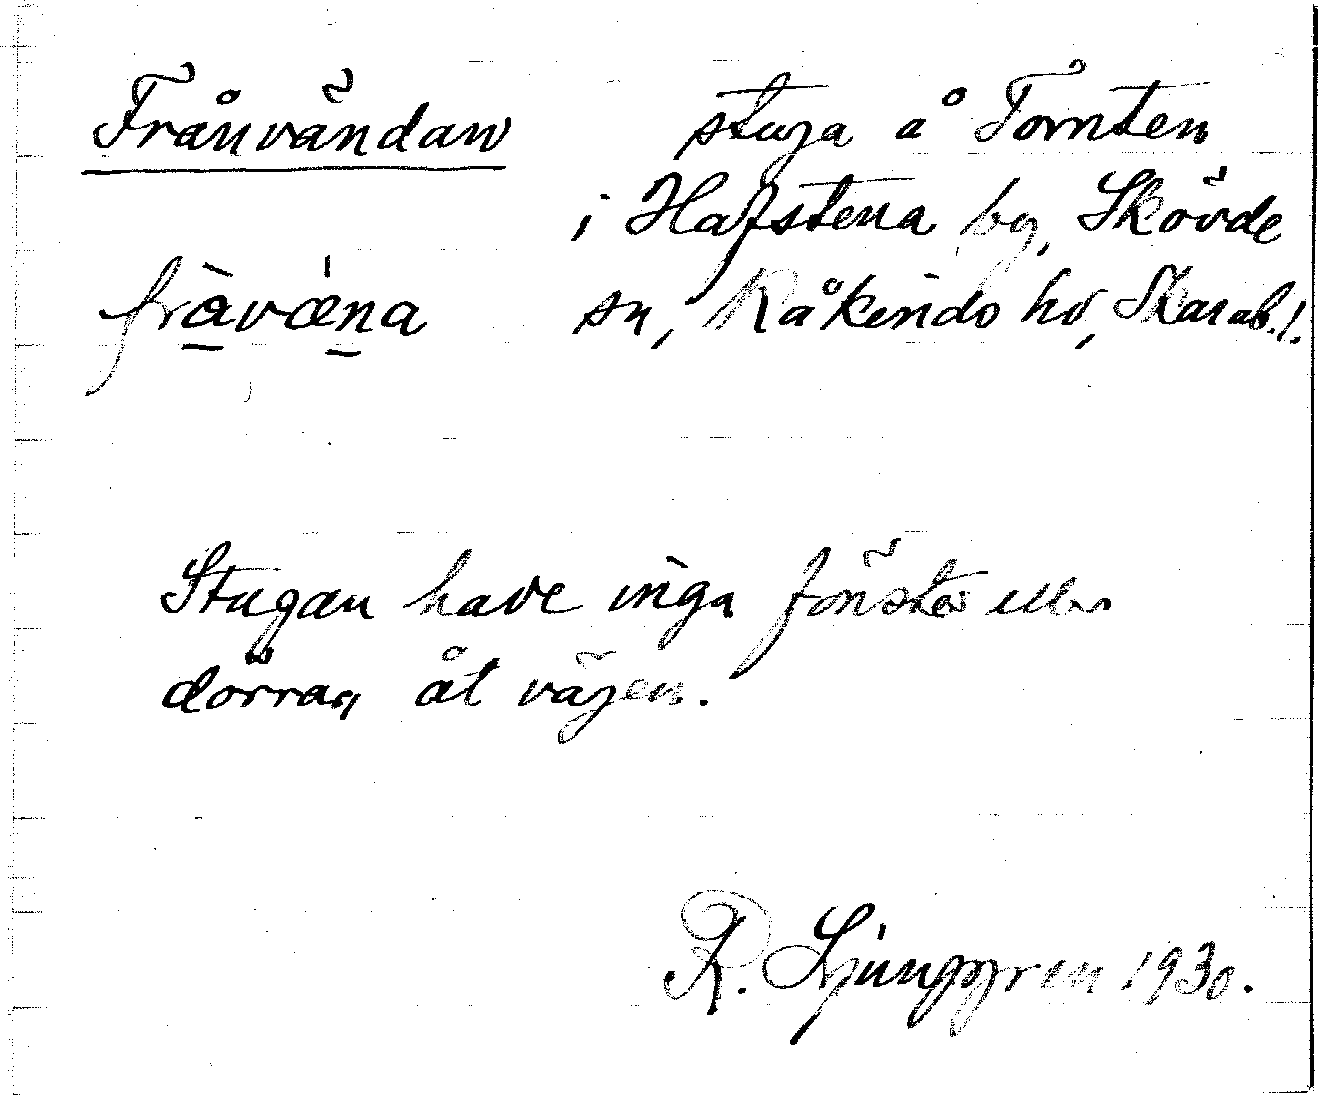 Frånvändan stuga å Tomten
i Hafstena by, Skövde
fràvǽna sn, Kåkinds hd, Skarab. l.
Stugan hade inga fönster eller
dörrar åt vägen.
R. Ljunggren 1930.